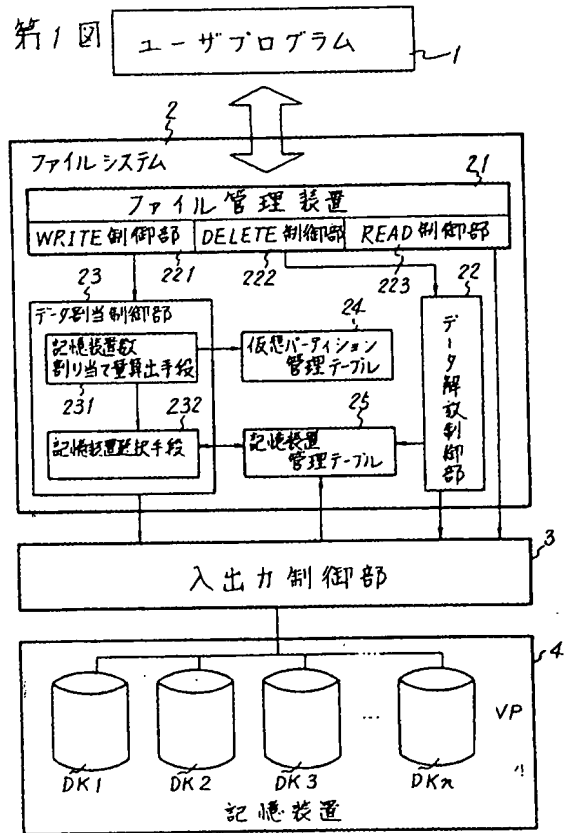 第1図
ユーザプログラム
1
2
ファイルシステム
21
ファイル管理装置
WRITE制御部
DELETE制御部
READ制御部
221
222
223
23
22
データ割当制御部
24
記憶装置数
割り当て量算出手段
仮想パーティション
管理テーブル
231
232
25
記憶装置選択手段
記憶装置
管理テーブル
データ解放制御部
3
入出力制御部
4
VP
...
DK1
DK2
DK3
DKn
記憶装置